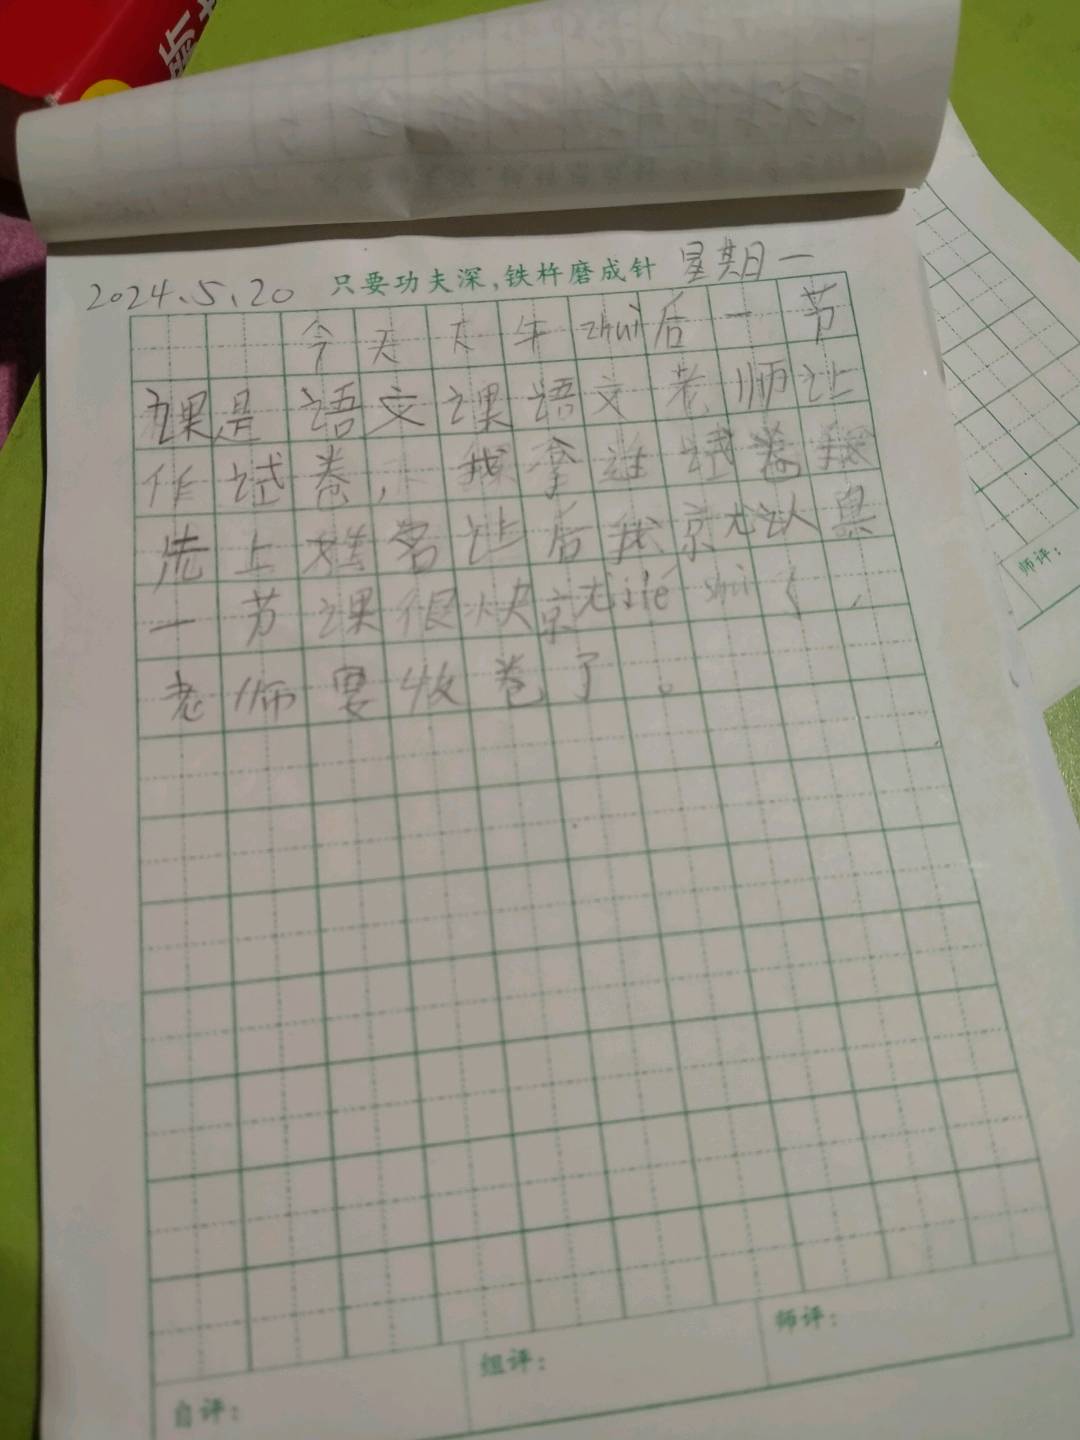 2024.5.20 只要功夫深,铁杵磨成针 星期日一
今天下午zhuì后一节
课是语文课语文老师让
作试卷,我拿进试卷我
先上姓名让后我京尤认真
一节课很快京尤jiéshù了,
老师要收卷了。
师评:
组评:
师评:
自评: